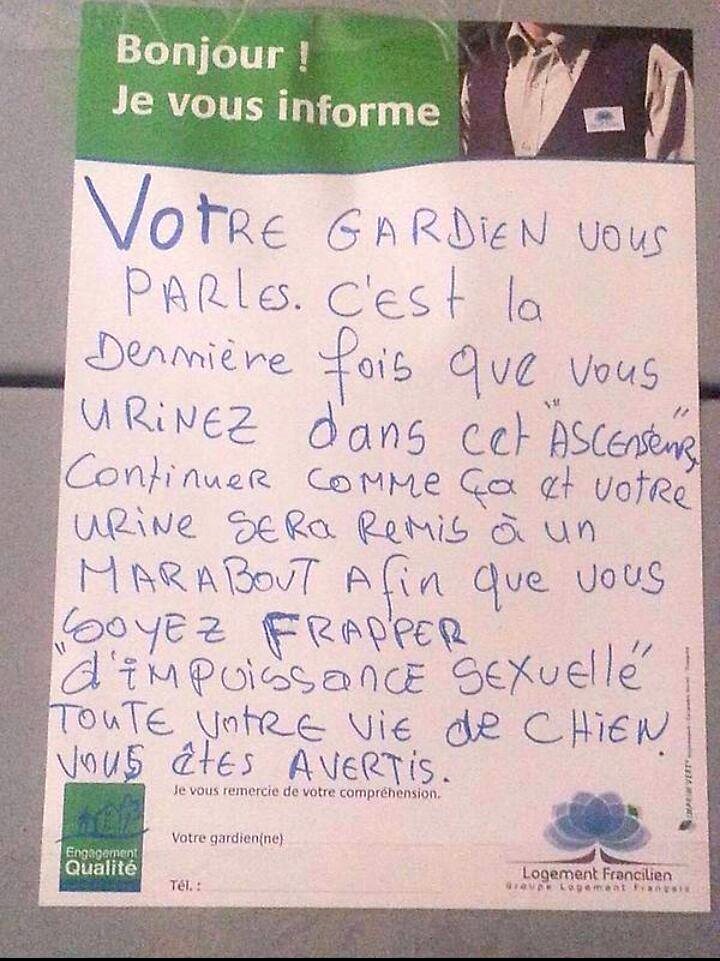 Bonjour !
Je vous informe
VOTRE GARDIEN VOUS
PARLES. C'EST la
Dernnière fois que vous
URINEZ dans cet "ASCENSEUR"
Continuer COMME ça et votre
URINE SERA REMIS à un
MARABOUT Afin que vous
SOYEZ FRAPPER
"d'IMPUISSANCE SEXUELLE"
TOUTE VOTRE VIE de CHIEN.
VOUS êtES AVERTIS.
Je vous remercie de votre compréhension.
Votre gardien(ne)
Tél. :
Engagement
Qualité
Logement Francilien
Groupe Logement Français